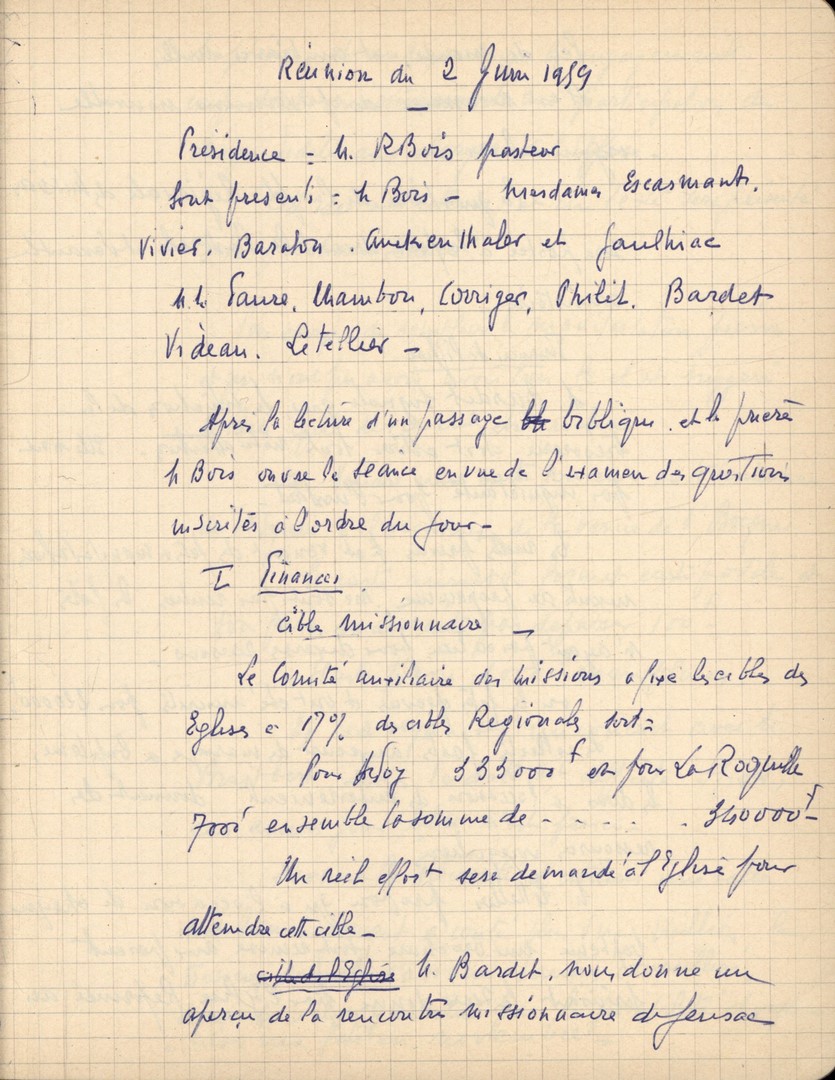 Réunion du 2 Juin 1959
Présidence = M. R Bois pasteur
Sont présents = M Bois – Mesdames Escarmant,
Vivier. Baraton. et Gaulhiac
M.M. Faure. Chambon, Corriger, Philit. Bardet
Videau. Letellier –
Après la lecture d'un passage biblique et la prière
M Bois ouvre la séance en vue de l'examen des questions
inscrites à l'ordre du jour –
I Finances
cible missionnaire –
Le Comité auxiliaire des missions a fixé les cibles des
Eglises à 17% des cibles Regionales soit =
Pour 333000 f et pour La Roquille
7000 ensemble la somme de - - - - - 340000 f –
Un réél effort sera demandé à l'Eglise pour
atteindre cette cible –
cible de l'Eglise M. Bardet, nous donne un
aperçu de la rencontre missionnaire de Gensac